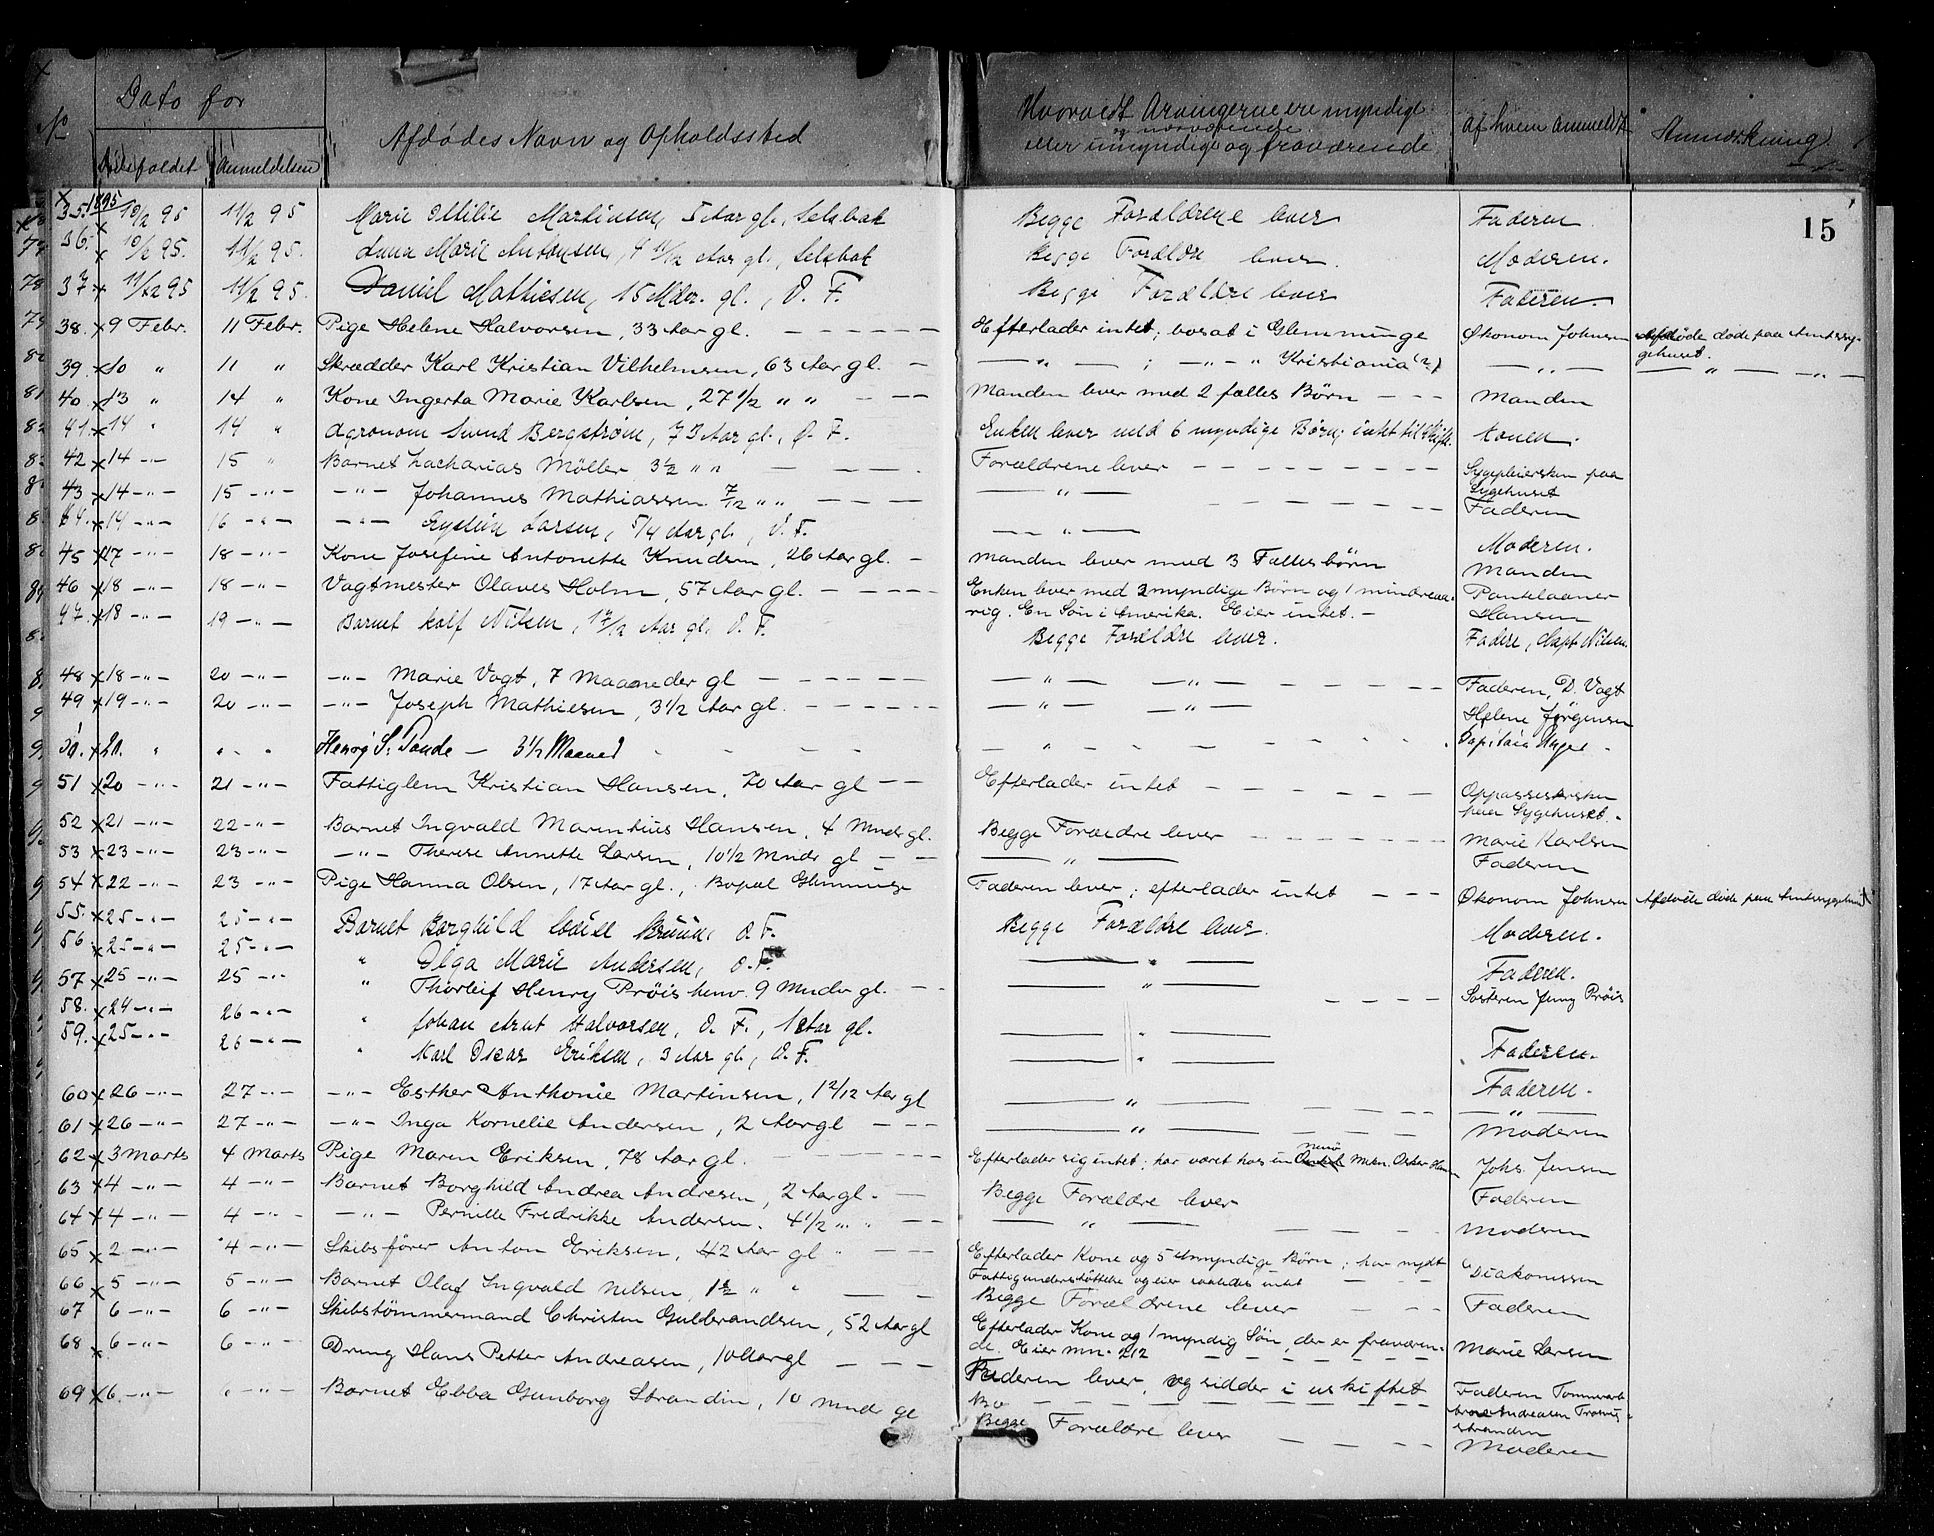 No
Dato for
Dødsfaldet
Anmeldelsen
Afdødes Navn og Opholdssted
Hvorvidt Arvingerne ere myndige
og nærværende
eller umyndige og fraværende
Af hvem anmeldt
Anmærkning
15
1895
35. 10/2 95 11/2 95 Marie Otilie Martinsen, 5 Aar gl., Selsbak Begge Forældrene lever Faderen
36. 10/2 95. 11/2 95. Anna Marie Antonsen, 4 11/12 Aar gl., Selsbak Begge Forældre lever. Moderen.
37 11/2 95 11/2 95. Daniel Mathiesen, 15 Mdr. gl., O. F. Begge Forældre lever Faderen
38. 9 Febr. 11 Febr. Pige Helene Halvorsen, 33 Aar gl. — — — Efterlader intet; bosat i Glemminge Økonom Johnsen Afdøde døde paa Amtssy-
gehuset.
39. 10 " 11 " Skrædder Karl Kristian Vilhelmsen, 63 Aar gl. — — " — ; — " — " Kristiania (?) — " — — " — — " —
40 13 " 14 " Kone Ingerta Marie Karlsen, 27 1/2 " " — — — Manden lever med 2 fælles Børn — — — Manden
41. 14 " 14 " Agronom Svend Bergstrøm, 73 Aar gl., O. F. Enken lever med 6 myndige Børn; intet til Skifte. Konen.
42 14 — 15 " Barnet Zacharias Møller 3 1/2 " " — — — Forældrene lever — — — Sygepleiersken paa
Sygehuset
43 14 — " — 15 — " — — " — Johannes Mathiassen 7/12 " " — — — — " — — — — Faderen
44. 14 — " — 16 — " — — " — Eystein Larsen, 5/4 Aar gl., O. F. — " — Moderen.
45 17 — " — 18 — " — Kone Josefine Antonette Knudsen, 26 Aar gl. — Manden lever med 3 Fællesbörn Manden
46 18 — " — 18 — " — Vagtmester Olaves Holm, 57 Aar gl. — — — Enken lever med 2 myndige Børn og 1 mindreaa-
rig. En Søn i Amerika. Eier intet. — Pantelaaner
Hansen
47. 18 — " — 19 — " — Barnet Rolf Nilsen, 1 7/12 Aar gl. O. F. Begge Forældre lever. Fadere, Kapt Nilsen.
48 18 — " — 20 — " — — " — Marie Vogt, 7 Maaneder gl — — — — " — — " — — — — Faderen, D. Vogt
49 19 — " — 20 — " — — " — Joseph Mathiesen, 3 1/2 Aar gl. — — — — " — — " — Helene Jørgensen
50. 20. " " " " Henry S. Pande — 3 1/2 Maaned — " — Kapitain
51 20 — " — 21 — " — Fattiglem Kristian Hansen, 70 Aar gl — — Efterlader intet — — — Oppassersken
paa Sygehuset.
52 21 — " — 22 — " — Barnet Ingvald Marentius Hansen, 4 Mndr gl. Begge Forældre lever — — — Marie Karlsen
53 23 — " — 23 — " — — " — Therese Annette Larsen, 10 1/2 Mndr gl — — — " — Faderen
54 22 — " — 23 — " — Pige Hanna Olsen, 17 Aar gl., Bopæl Glemminge Faderen lever; efterlader intet — — — Økonom Johnsen Afdøde døde paa Amtssygehuset
55. 25 — " — 25 — " — Barnet Borghild Bruun, O. F. Begge Forældre lever. Moderen.
56 25 — " — 25 — " — " Olga Marie Andersen, O. F. — " — Faderen.
57 25 — " — 25 — " — " Thorleif Henry Prøis henv. 9 Mndr gl. — — — " — — — — Søsteren Jenny Prøis
58. 24 — " — 26 — " — " Johan Arnt Halvorsen, O. F., 1 Aar gl. — " — Faderen.
59. 25 — " — 26 — " — " Karl Oscar Eriksen, 3 Aar gl., O. F. — " — Faderen.
60 26 — " — 27 — " — — " — Esther Anthonie Martinsen, 1 2/12 Aar gl — " — — — — — " —
61 26 — " — 27 — " — — " — Inga Kornelie Andersen, 2 Aar gl — — — — " — — — — Moderen
62 3 Marts 4 Marts Pige Maren Eriksen, 78 Aar gl. — — — Efterlader sig intet; har været hos Johs. Jensen
63 4 — " — 4 — " — Barnet Borghild Andrea Andresen, 2 Aar gl. — Begge Forældre lever Faderen
64 4 — " — 4 — " — — " — Pernille Fredrikke Andersen. 4 1/2 " " — — — " — — — — Moderen
65 2 — " — 4 — " — Skibsfører Anton Eriksen, 42 Aar gl — — Efterlader Kone og 5 umyndige Børn; har nydt
Fattigunderstøttelse og eier saaledes intet — — — Diakonissen
66 5 — " — 5 — " — Barnet Olaf Ingvald Nelsen, 1 1/2 " " — — Begge Forældrene lever — — — Faderen
67 6 — " — 6 — " — Skibstømmermand Christen Gulbrandsen, 52 Aar gl Efterlader Kone og 1 myndig Søn, der er fraværen-
de. Eier Mn. 212 — — — Marie Larsen
68 6 — " — 6 — " — Dreng Hans Petter Andreasen, 10 Aar gl — — — Faderen lever, og sidder i uskiftet
Bo — — — Faderen Tommerarb
Andreasen
69 6. — " — 6 — " — Barnet Ebba Gunborg Strandin, 10 Mndr gl Begge Forældre lever — — — Moderen